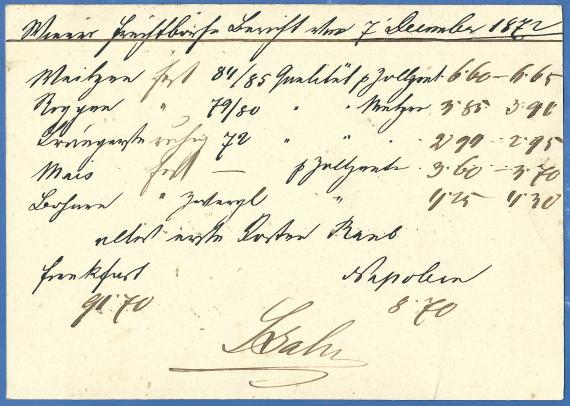 Wiener Fruchtbörse Bericht vom 7 December 1872
Weitzen fest 84/85 Qualität p Zollzent 6.60 – 6.65
Roggen " 79/80 " " Metzen 3.85 3.91
Braugerste ruhig 72 " " 2.90 – 2.95
Mais fest — p Zollzente 3.60 – 3.70
Bohnen " Zwergl " 4.25 – 4.30
alles erste Kosten Raab
Frankfurt Napoleon
91.70 8.70